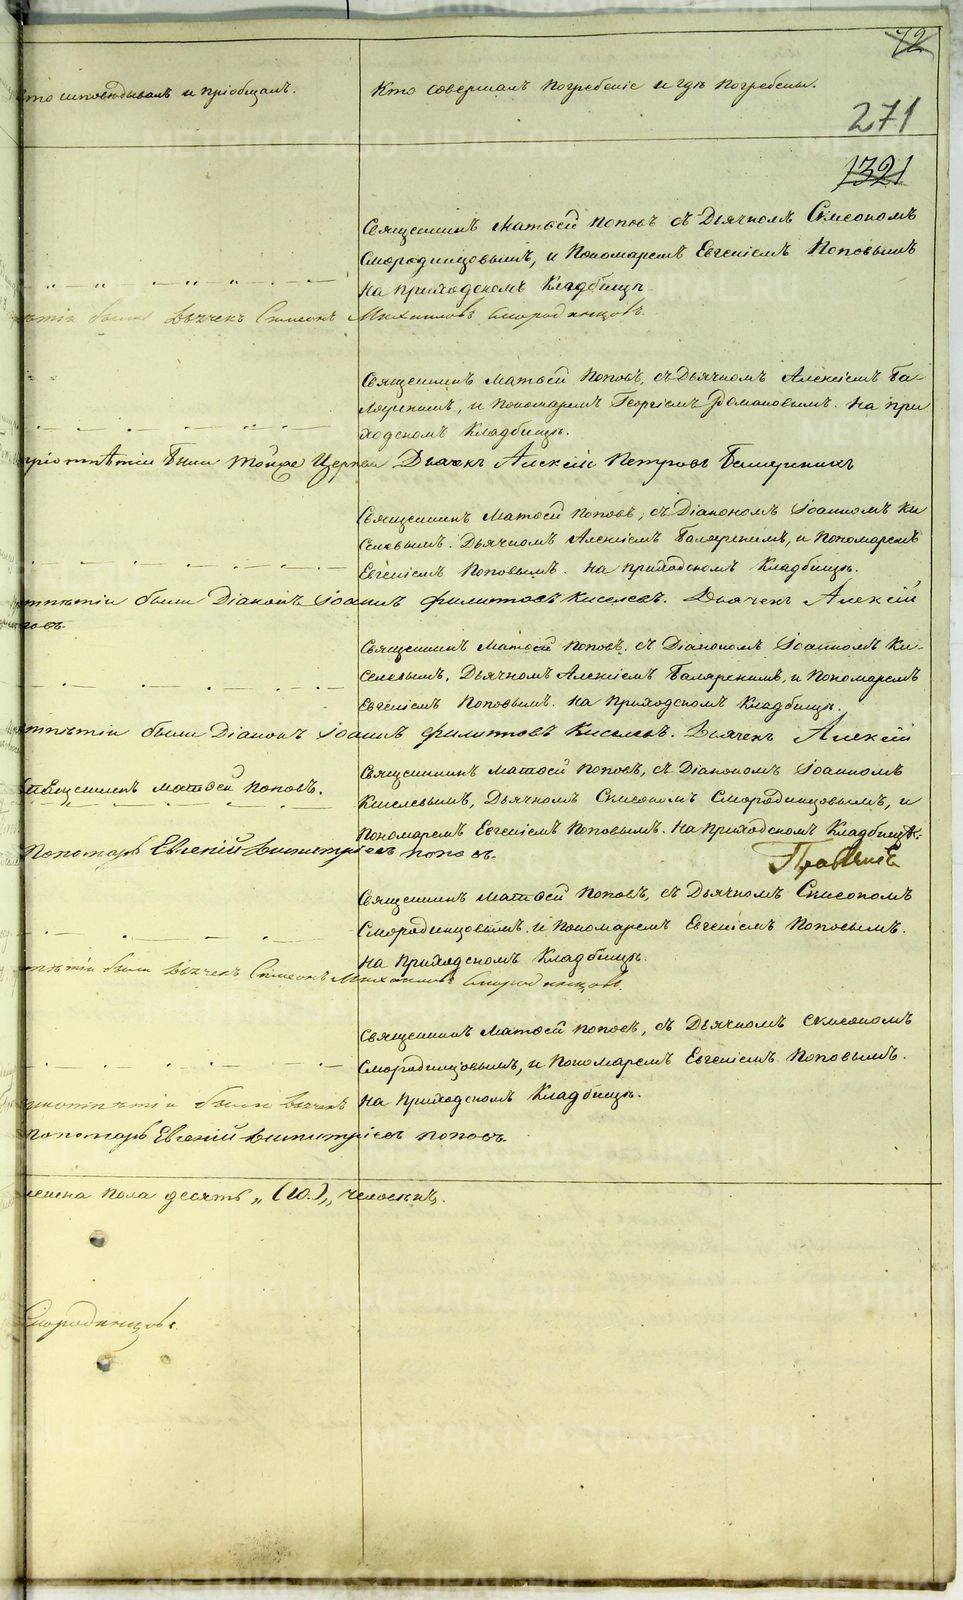 72
Кто исповѣдывалъ и пріобщалъ.
Кто совершалъ погребеніе и гдѣ погребены.
271
1321
Священникъ Матѳей Поповъ съ Дьячкомъ Симеономъ
Смородинцовымъ, и Пономаремъ Евгеніемъ Поповымъ
На приходскомъ Кладбищѣ
были Дьячекъ Симеонъ Михайловъ Смородинцовъ.
Священникъ Матѳей Поповъ, съ Дьячкомъ Алексіемъ Ба-
ляренимъ, и Пономаремъ Георгіемъ Романовымъ. На при
ходскомъ Кладбищѣ.
были тойже Церкви Дьячекъ Алексій Петровъ
Священникъ Матѳей Поповъ, съ Діакономъ Іоанномъ Ки
селевымъ. Дьячкомъ Алексіемъ Баляренимъ, и Пономаремъ
Евгеніемъ Поповымъ. На приходскомъ Кладбищѣ.
были Діаконъ Іоаннъ Филиповъ Киселевъ. Дьячекъ Алексій
Священникъ Матѳей Поповъ. съ Діакономъ Іоанномъ Ки-
селевымъ, Дьячкомъ Алексіемъ Баляренимъ, и Пономаремъ
Евгеніемъ Поповымъ. На Приходскомъ Кладбищѣ.
были Діаконъ Іоаннъ Филиповъ Киселевъ. Дьячекъ Алексій
Священникъ Матѳей Поповъ, съ Діакономъ Іоанномъ
Священникъ Матѳей Поповъ.
Киселевымъ, Дьячкомъ Симеономъ Смородинцовымъ, и
Пономаремъ Евгеніемъ Поповымъ. На приходскомъ Кладбищѣ.
Пономарь Евгеній Димитріевъ Поповъ.
Священникъ Матѳей Поповъ, съ Дьячкомъ Симеономъ
Смородинцовымъ. и Пономаремъ Евгеніемъ Поповымъ.
На Приходскомъ Кладбищѣ.
были Дьячекъ Симеонъ Михайловъ Смородинцовъ.
Священникъ Матѳей Поповъ, съ Дьячкомъ Симеономъ
Смородинцовымъ, и Пономаремъ Евгеніемъ Поповымъ.
На Приходскомъ Кладбищѣ.
были Дьячекъ
Пономарь Евгеній Димитріевъ Поповъ.
пола десять „(10.)„ человѣкъ.
Смородинцовъ.
METRIKI.GASO-URAL.RU